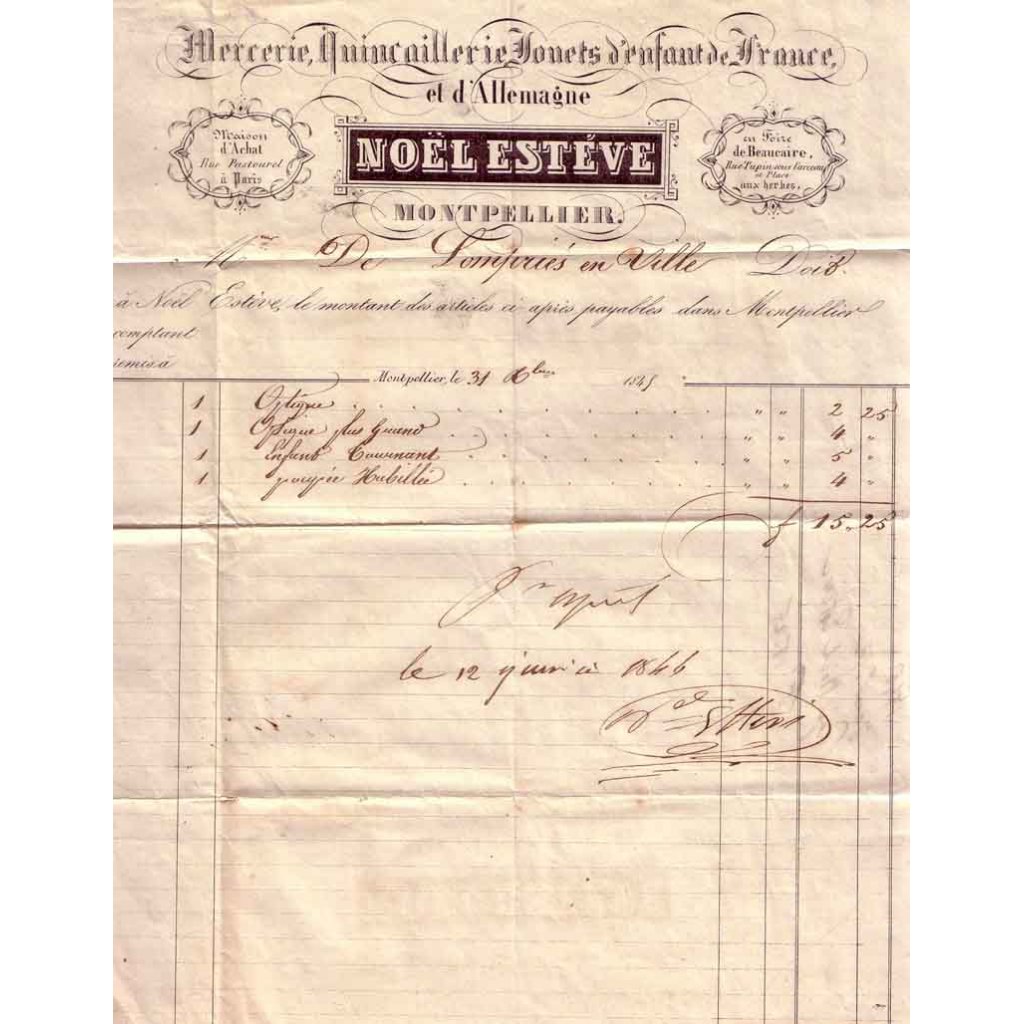 Mercerie, Quincaillerie Jouets d'enfant de France,
et d'Allemagne
Maison
d'Achat
Rue Pastourel
à Paris
NOËL ESTÈVE
MONTPELLIER.
en Foire
de Beaucaire,
Rue Tupin sous l'arceau
et Place
aux herbes,
Mr De Lompriés en Ville Doit
à Noël Estève, le montant des articles ci après payables dans Montpellier
comptant
remis à
Montpellier, le 31 Xbre 1845
1 Optique " " 2 25
1 Optique plus Grand " " 4 "
1 Enfant Tournant " " 5 "
1 poupée Habillée " " 4 "
f 15. 25
acquit
le 12 janvier 1846
Noël Estève